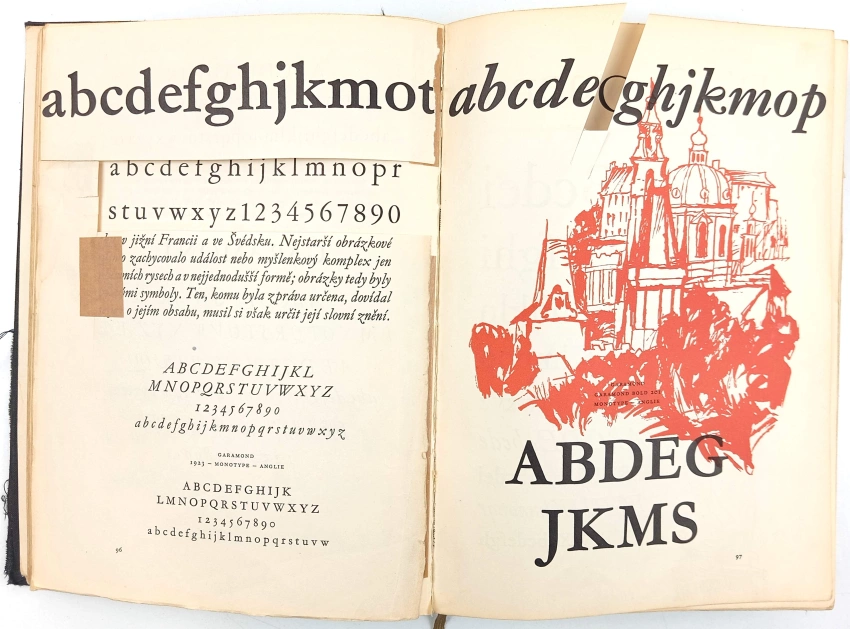 abcdefghjkmot
abcdefghijklmnopr
stuvwxyz1234567890
v jižní Francii a ve Švédsku. Nejstarší obrázkové
zachycovalo událost nebo myšlenkový komplex jen
rysech a v nejjednodušší formě; obrázky tedy byly
symboly. Ten, komu byla zpráva určena, dovídal
o jejím obsahu, musil si však určit její slovní znění.
*
ABCDEFGHIJKL
MNOPQRSTUVWXYZ
1234567890
abcdefghijkmnopqrstuvwxyz
GARAMOND
1923 – MONOTYPE – ANGLIE
ABCDEFGHIJK
LMNOPQRSTUVWXYZ
1234567890
abcdefghijklmnopqrstuvw
96
abcde ghjkmop
GARAMOND
GARAMOND BOLD 201
MONOTYPE – ANGLIE
ABDEG
JKMS
97